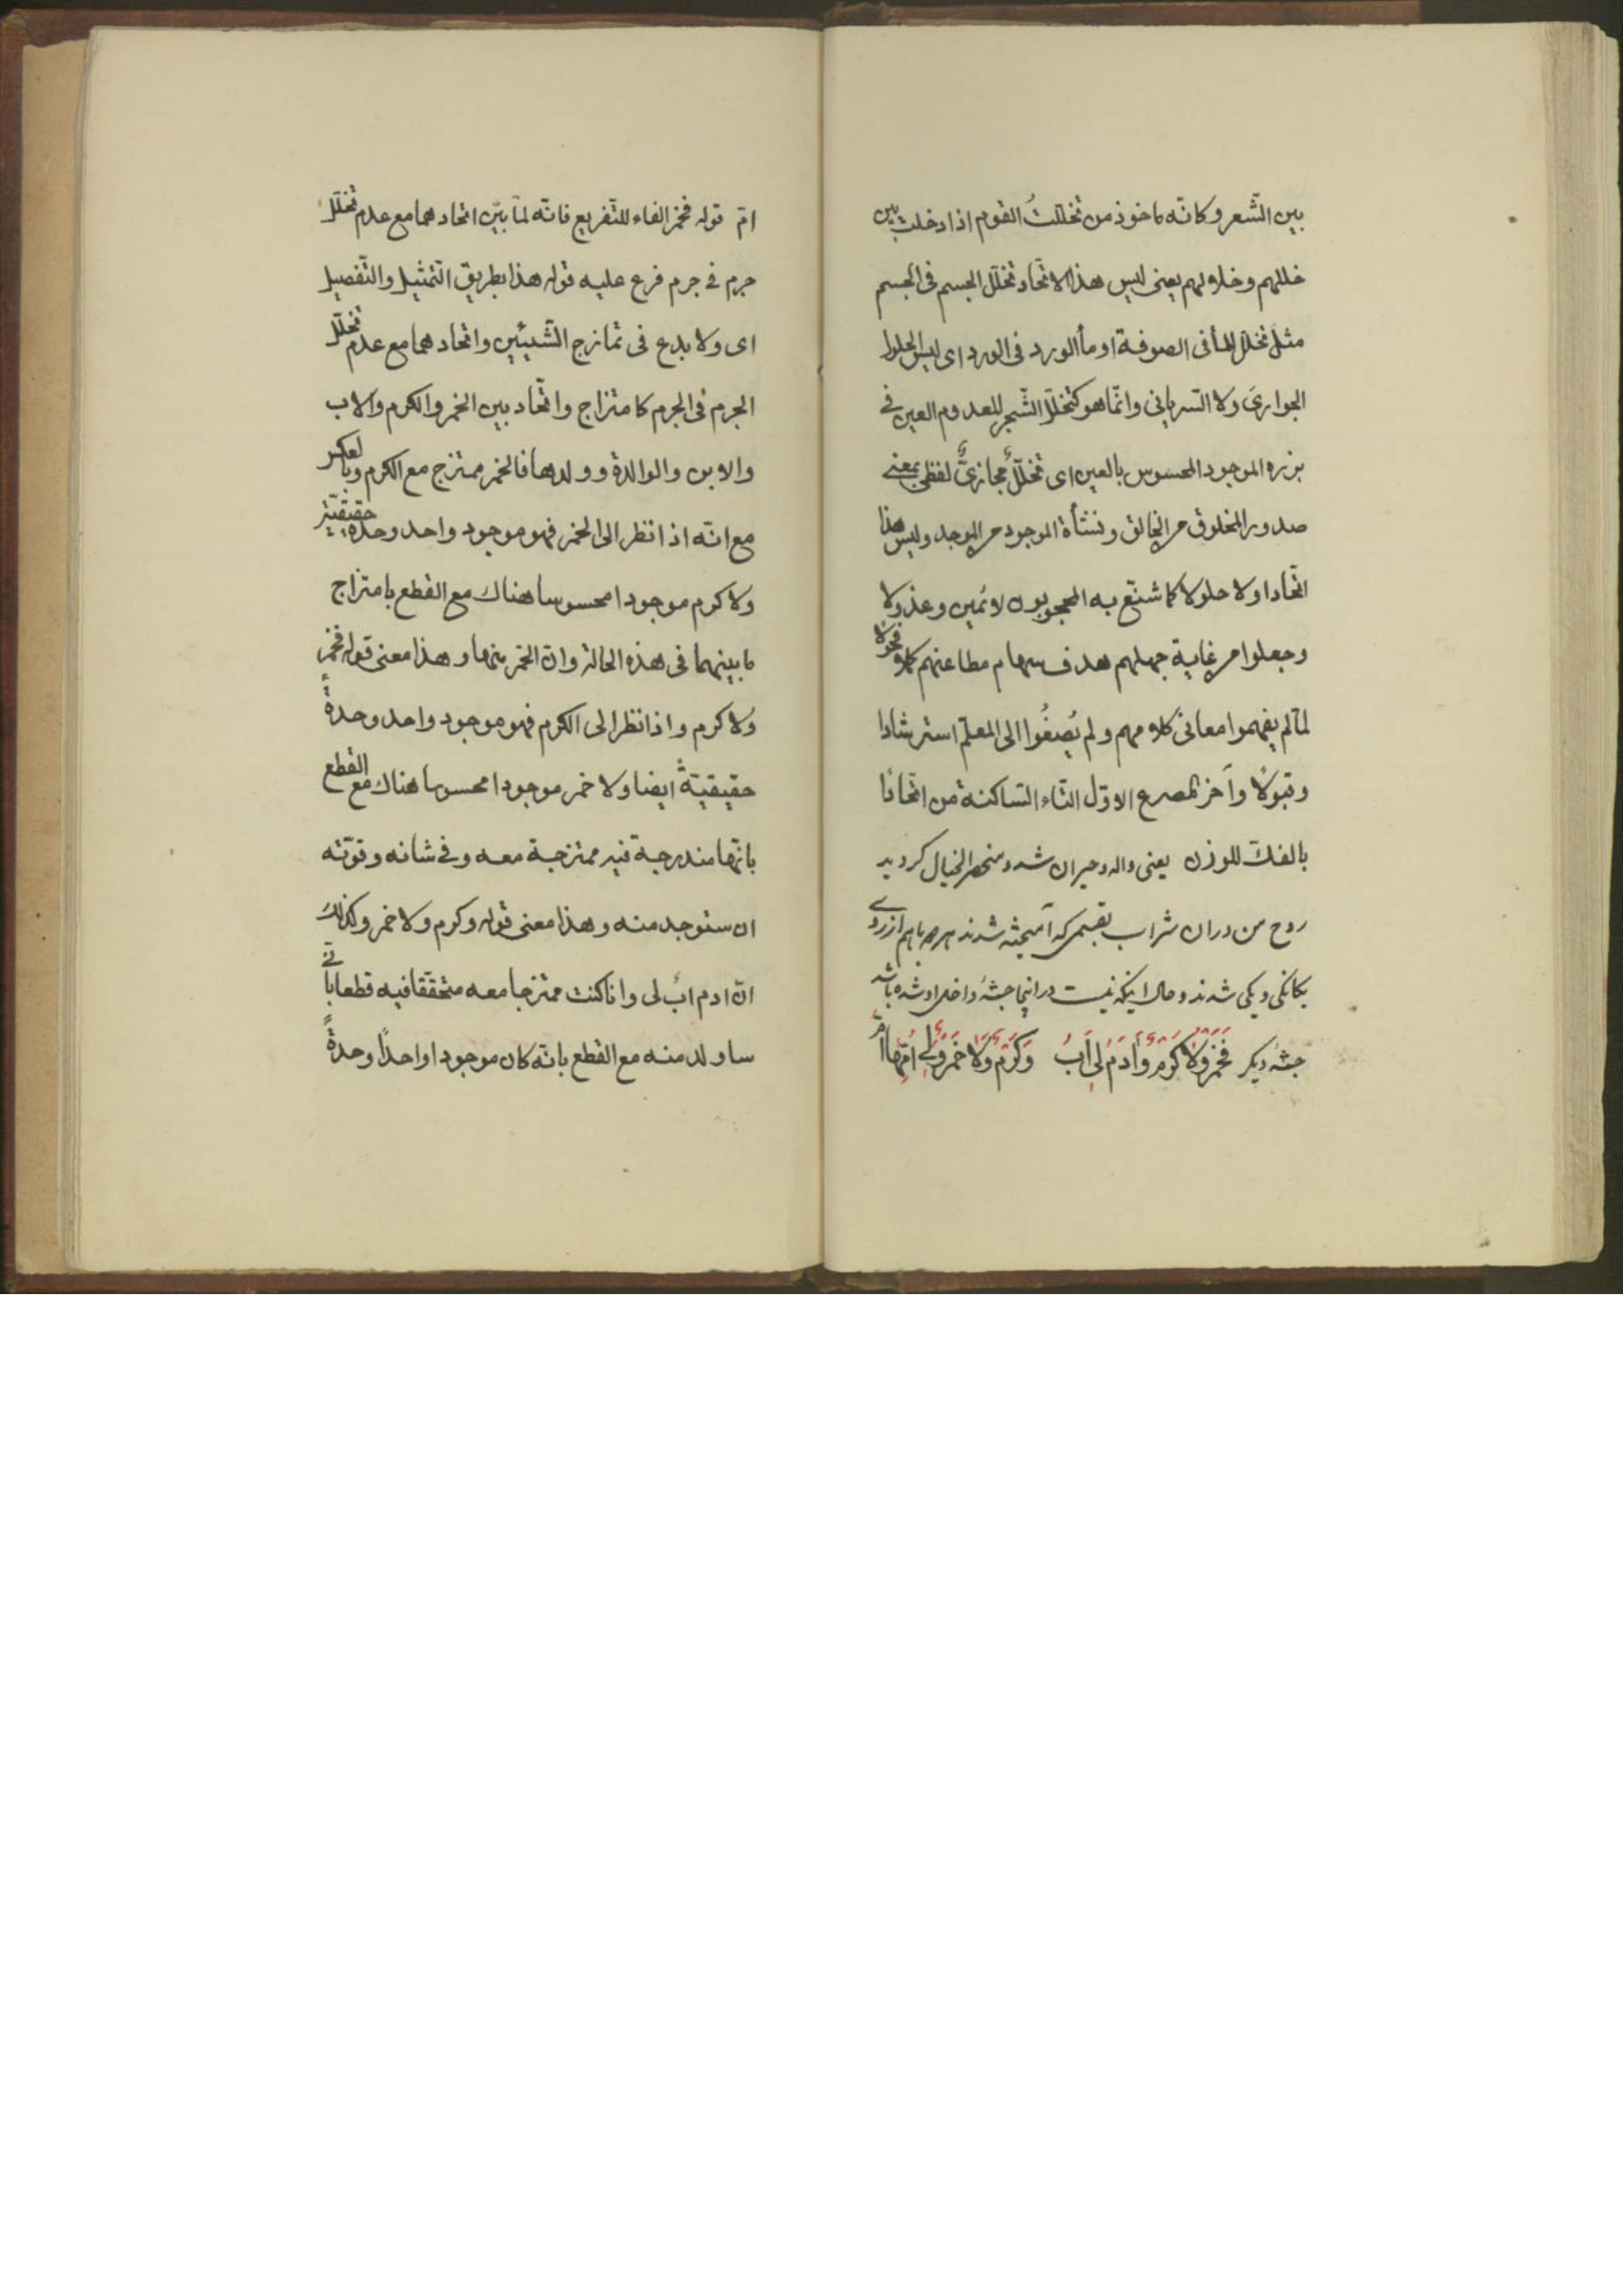 بين الشّعر وكانّه ماخوذ من تخلّلتُ القوم اذا دخلت بين
خللهم وخلولهم يعنى ليس هذا الاتّحاد تخلّل الجسم فى الجسم
مثل تخلّل الماء فى الصوفة او ماء الورد فى الورد اى ليس الحلول
الجوارىَ ولا السّريانى وانّما هو كتخلّل الشّجر المعدوم العين فى
بزره الموجود المحسوس بالعين اى تخلّلٌ مجازىٌّ لفظى بمعنى
صدور المخلوق من الخالق ونشأة الموجود من الموجد وليس هذا
اتّحادا ولا حلولا كما شنّع به المحجوبون لائمين وعذولا
وجعلوا من غاية جهلهم هدف سهام مطاعنهم فحولا
لمّا لم يفهموا معانى كلامهم ولم يُصغُوا الى المعلّم استرشادا
وقبولًا وآخر المصرع الاوّل التّاء السّاكنة من اتّحادًا
بالفكّ للوزن يعنى واله وحيران شد ومنحصر الخيال كرديد
روح من در ان شراب بقسمى كه آميخته شدند هر دو باهم از روى
يكانكى ويكى شدند وحال اينكه نيست در اينجا جثهٔ داخل او شده باشد
جثهٔ ديكر فَخَمْرٌ وَلَا كَرْمٌ وَآدَمُ لِى اَبٌ وَكَرْمٌ وَلَا خَمْرٌ وَلِى اُمُّهَا اُمُّ
امّ قوله فخمر الفاء للتّفريع فانّه لمّا بيّن اتحادهما مع عدم تخلّل
جرم فى جرم فرع عليه قوله هذا بطريق التّمثيل والتّفصيل
اى ولا بدع فى تمازج الشّيئين واتحادهما مع عدم تخلّل
الجرم فى الجرم كامتزاج واتّحاد بين الخمر والكرم والاب
والابن والوالدة وولدها فالخمر ممتزج مع الكرم وبالعكس
مع انّه اذا نظر الى الخمر فهو موجود واحد وحدة حقيقيّة
ولا كرم موجودا محسوسا هناك مع القطع بامتزاج
ما بينهما فى هذه الحالة وانّ الخمر منها وهذا معنى قوله فخمرٌ
وَلا كرم واذا نظر الى الكرم فهو موجود واحد وحدةً
حقيقيّةً ايضا ولا خمر موجودا محسوسا هناك مع القطع
بانّها مندرجة فيه ممتزجة معه وفى شانه وقوّته
ان ستوجد منه وهذا معنى قوله وكرم ولا خمر وكذلك
انّ ادم ابٌ لى وانا كنت ممتزجا معه متحققا فيه قطعا بانّى
ساولد منه مع القطع بانّه كان موجودا واحدًا وحدةً